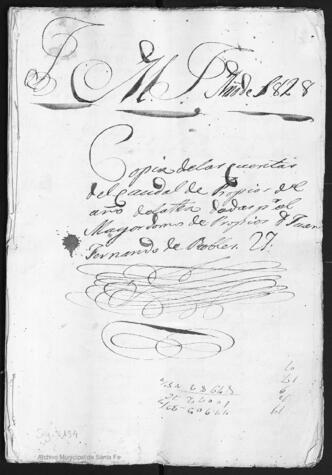 J M J Año de 1828
Copia de las cuentas
del caudal de Propios del
año de la fha dadas pr. el
Mayordomo de Propios Dn Juan
Fernando de Robles 27.
Archivo Municipal de Santa Fe